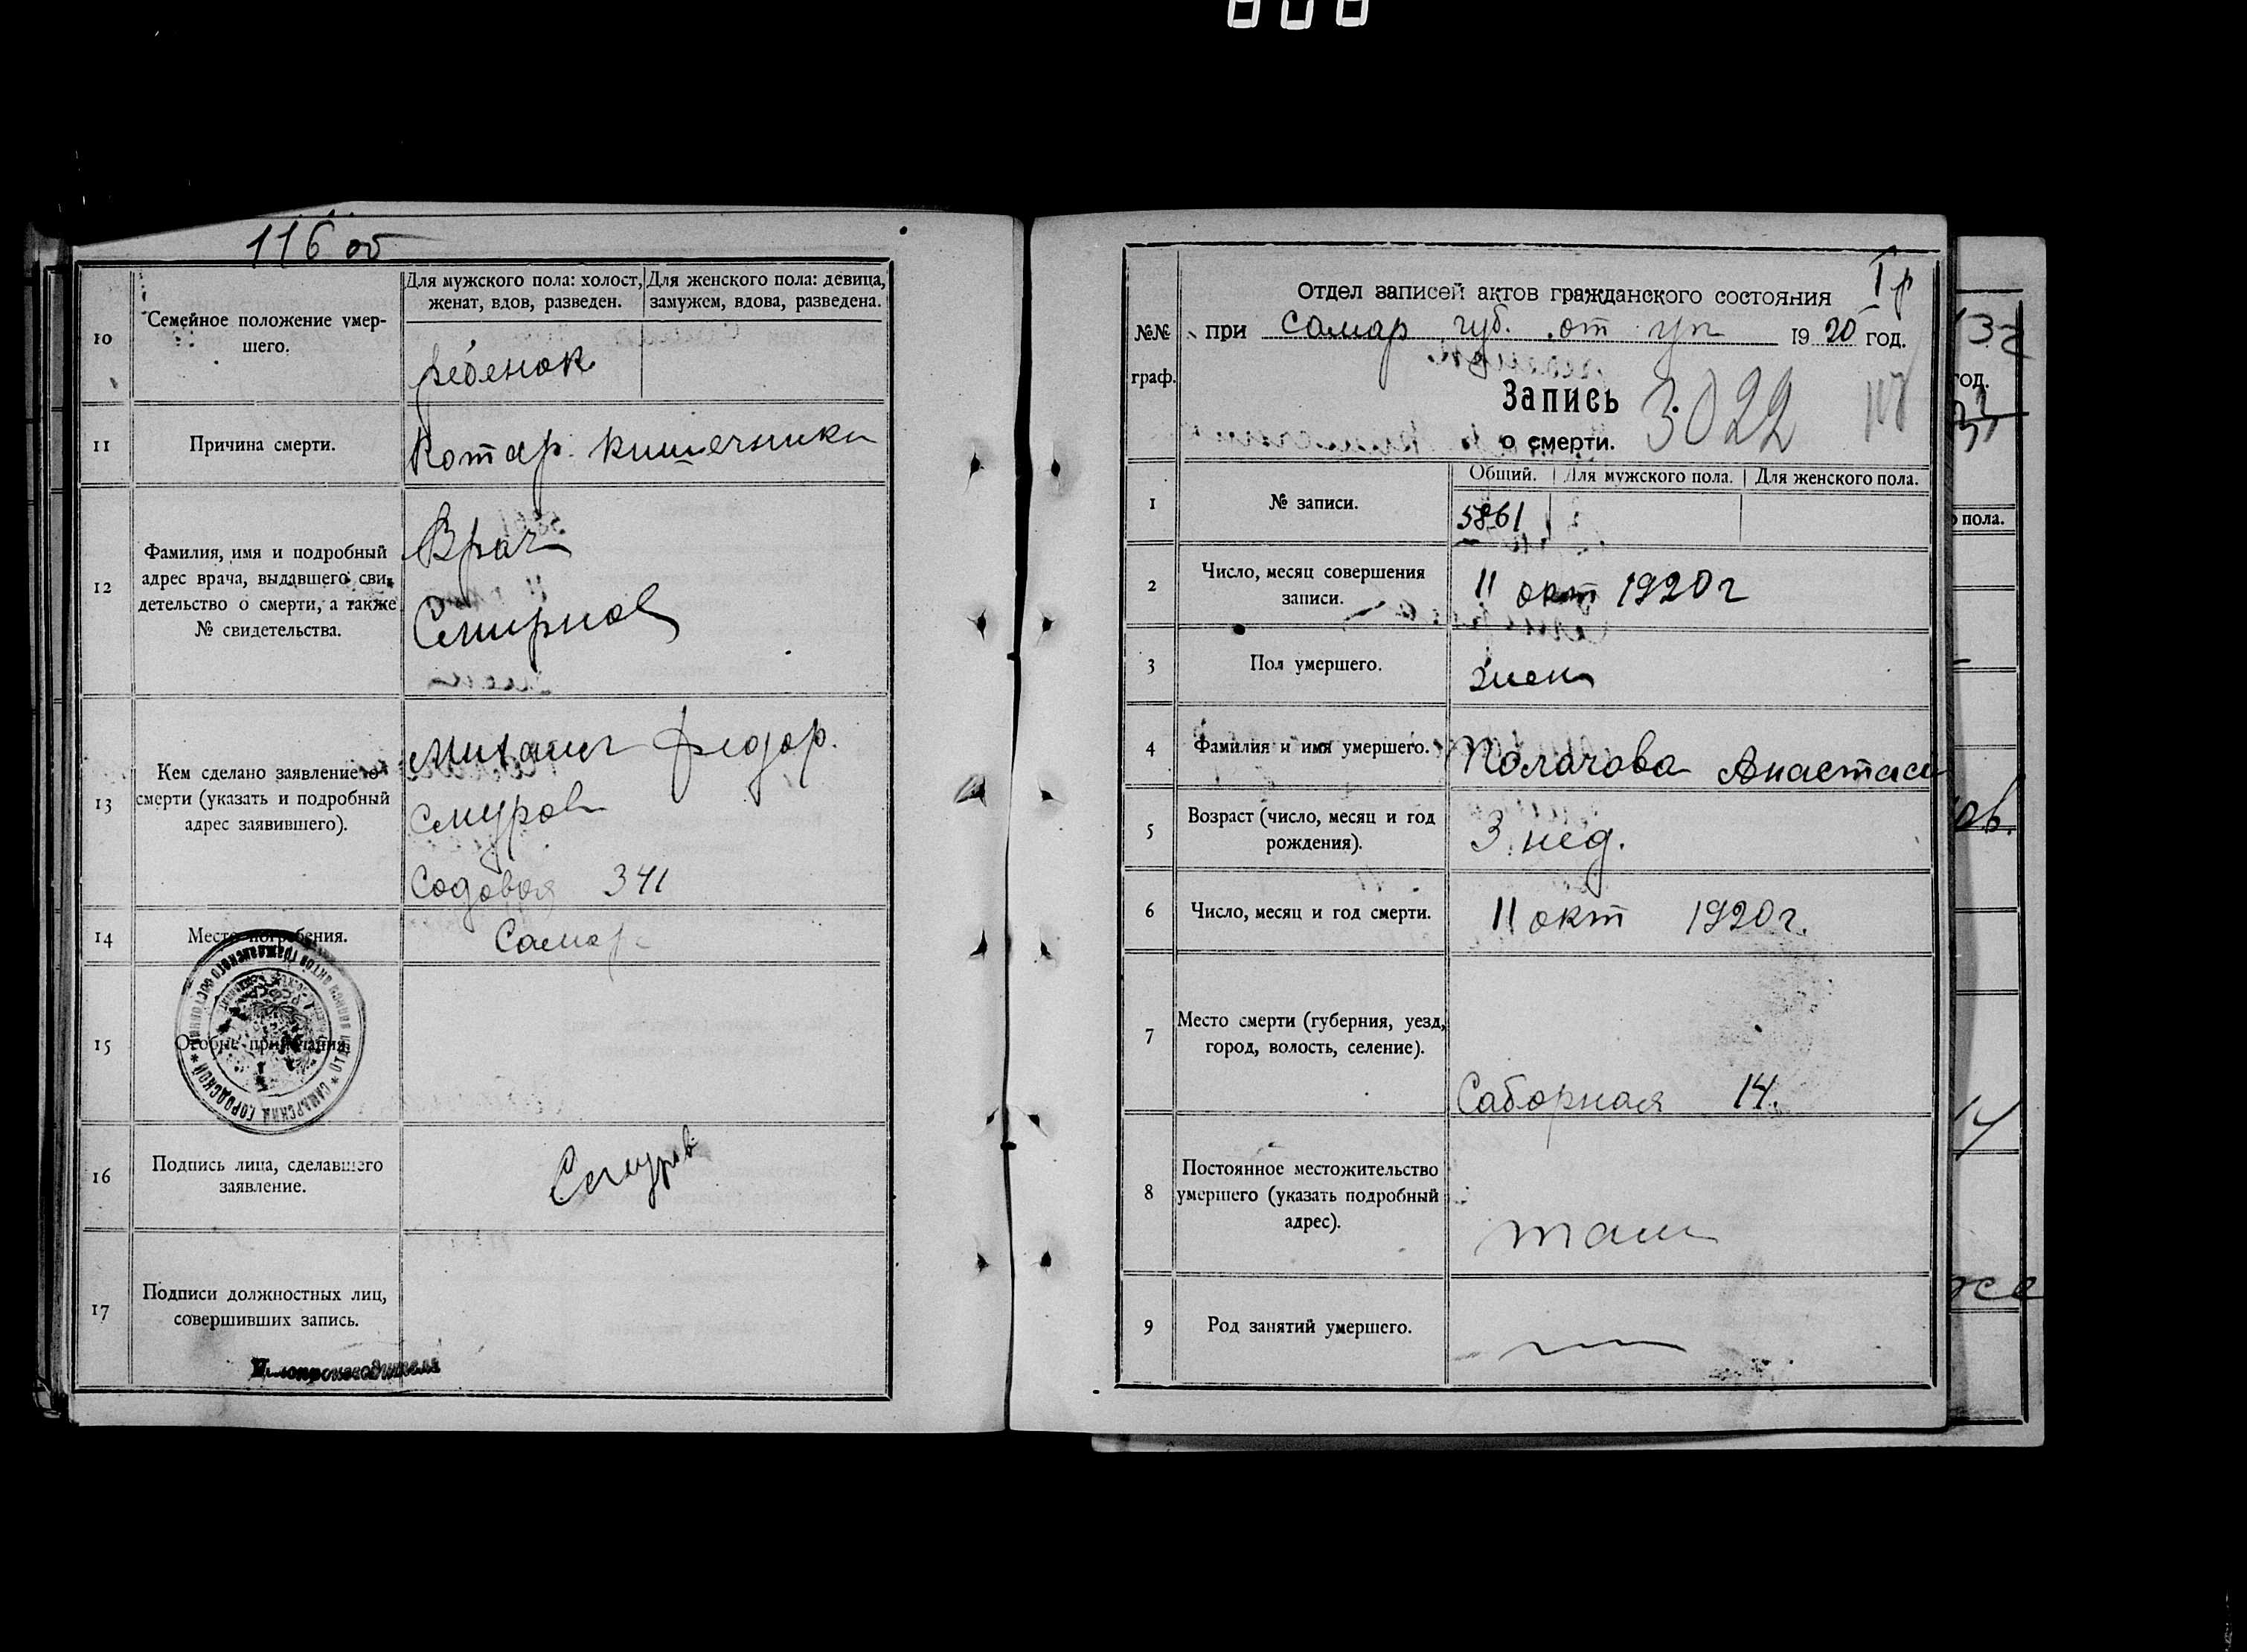 116 об
10
Семейное положение умер-
шего.
Для мужского пола: холост,
женат, вдов, разведен.
Для женского пола: девица,
замужем, вдова, разведена.
ребенок
11
Причина смерти.
Катар. кишечника
12
Фамилия, имя и подробный
адрес врача, выдавшего сви-
детельство о смерти, а также
№ свидетельства.
Врач
Смирнов
13
Кем сделано заявление о
смерти (указать и подробный
адрес заявившего).
Михаил Федор.
Смуров
Садовая 341
14
Место погребения.
Самар
15
Особые примечания.
16
Подпись лица, сделавшего
заявление.
Смуров
17
Подписи должностных лиц,
совершивших запись.
I р
Отдел записей актов гражданского состояния
№№
граф.
при Самар губ. от уп 1920 год.
Запись
о смерти.
3022
1
№ записи.
Общий. Для мужского пола. Для женского пола.
5861
2
Число, месяц совершения
записи.
11 окт 1920 г
3
Пол умершего.
жен
4
Фамилия и имя умершего.
Анастаси
5
Возраст (число, месяц и год
рождения).
3 нед.
6
Число, месяц и год смерти.
11 окт 1920 г.
7
Место смерти (губерния, уезд,
город, волость, селение).
Саборная 14.
8
Постоянное местожительство
умершего (указать подробный
адрес).
там
9
Род занятий умершего.
год.
пола.